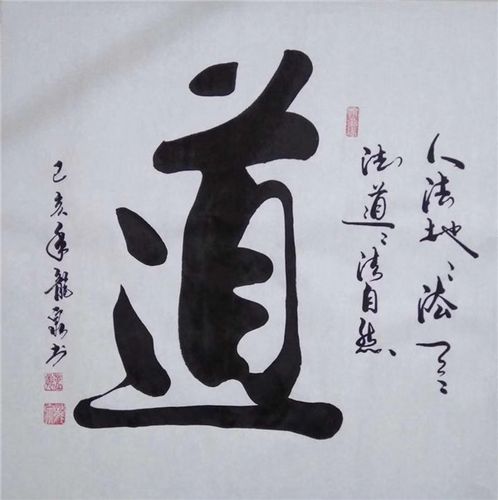 人法地〻法天〻
法道〻法自然
道
己亥年龍泉书